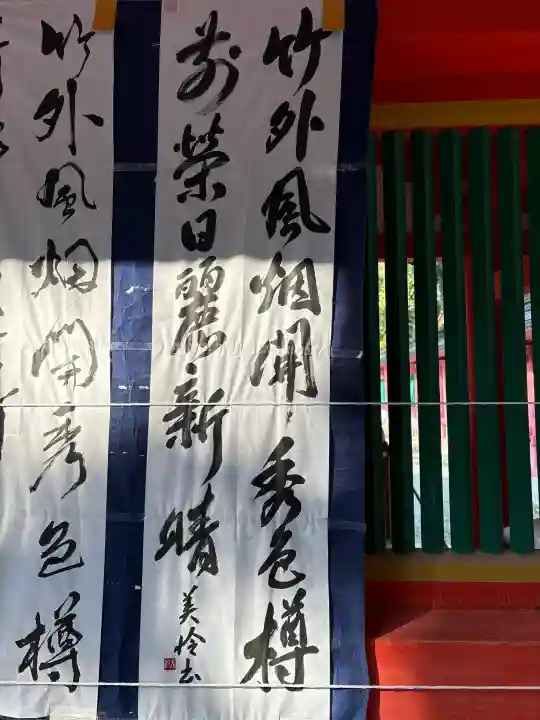 竹外風烟開秀色樽
前榮日麗新晴
美怜书
竹外風烟開秀色樽